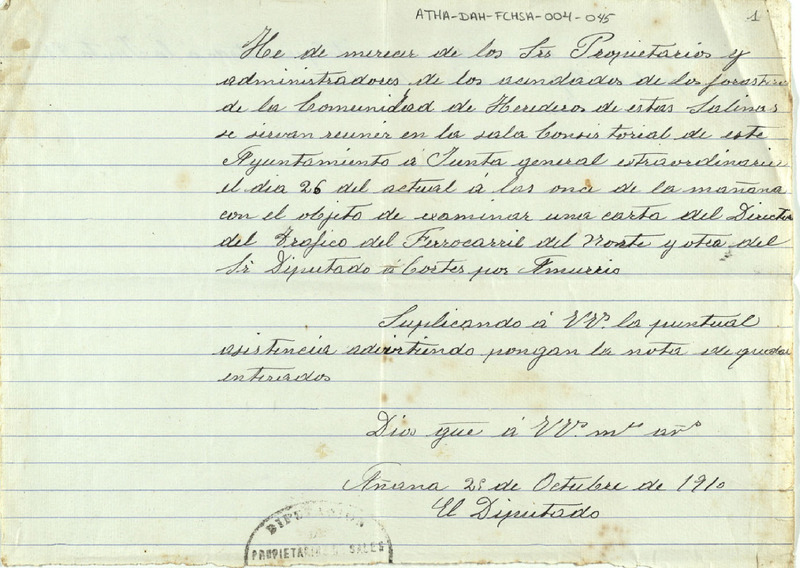 ATHA-DAH-FCHSA-004-045
1
He de merecer de los Srs Propietarios y
administradores de los acendados de los forasteros
de la Comunidad de Herederos de estas Salinas
se sirvan reunir en la sala Consistorial de este
Ayuntamiento á Junta general extraordinaria
el dia 26 del actual á las once de la mañana
con el objeto de examinar una carta del Director
del Trafico del Ferrocarril del Norte y otra del
Sr Diputado á Cortes por Amurrio
Suplicando á VVs la puntual
asistencia advirtiendo pongan la nota de quedar
enterados
Dios gue á VVs ms añs
Añana de Octubre de 1910
El Diputado
DIPUTACION
DE
PROPIETARIOS SALES